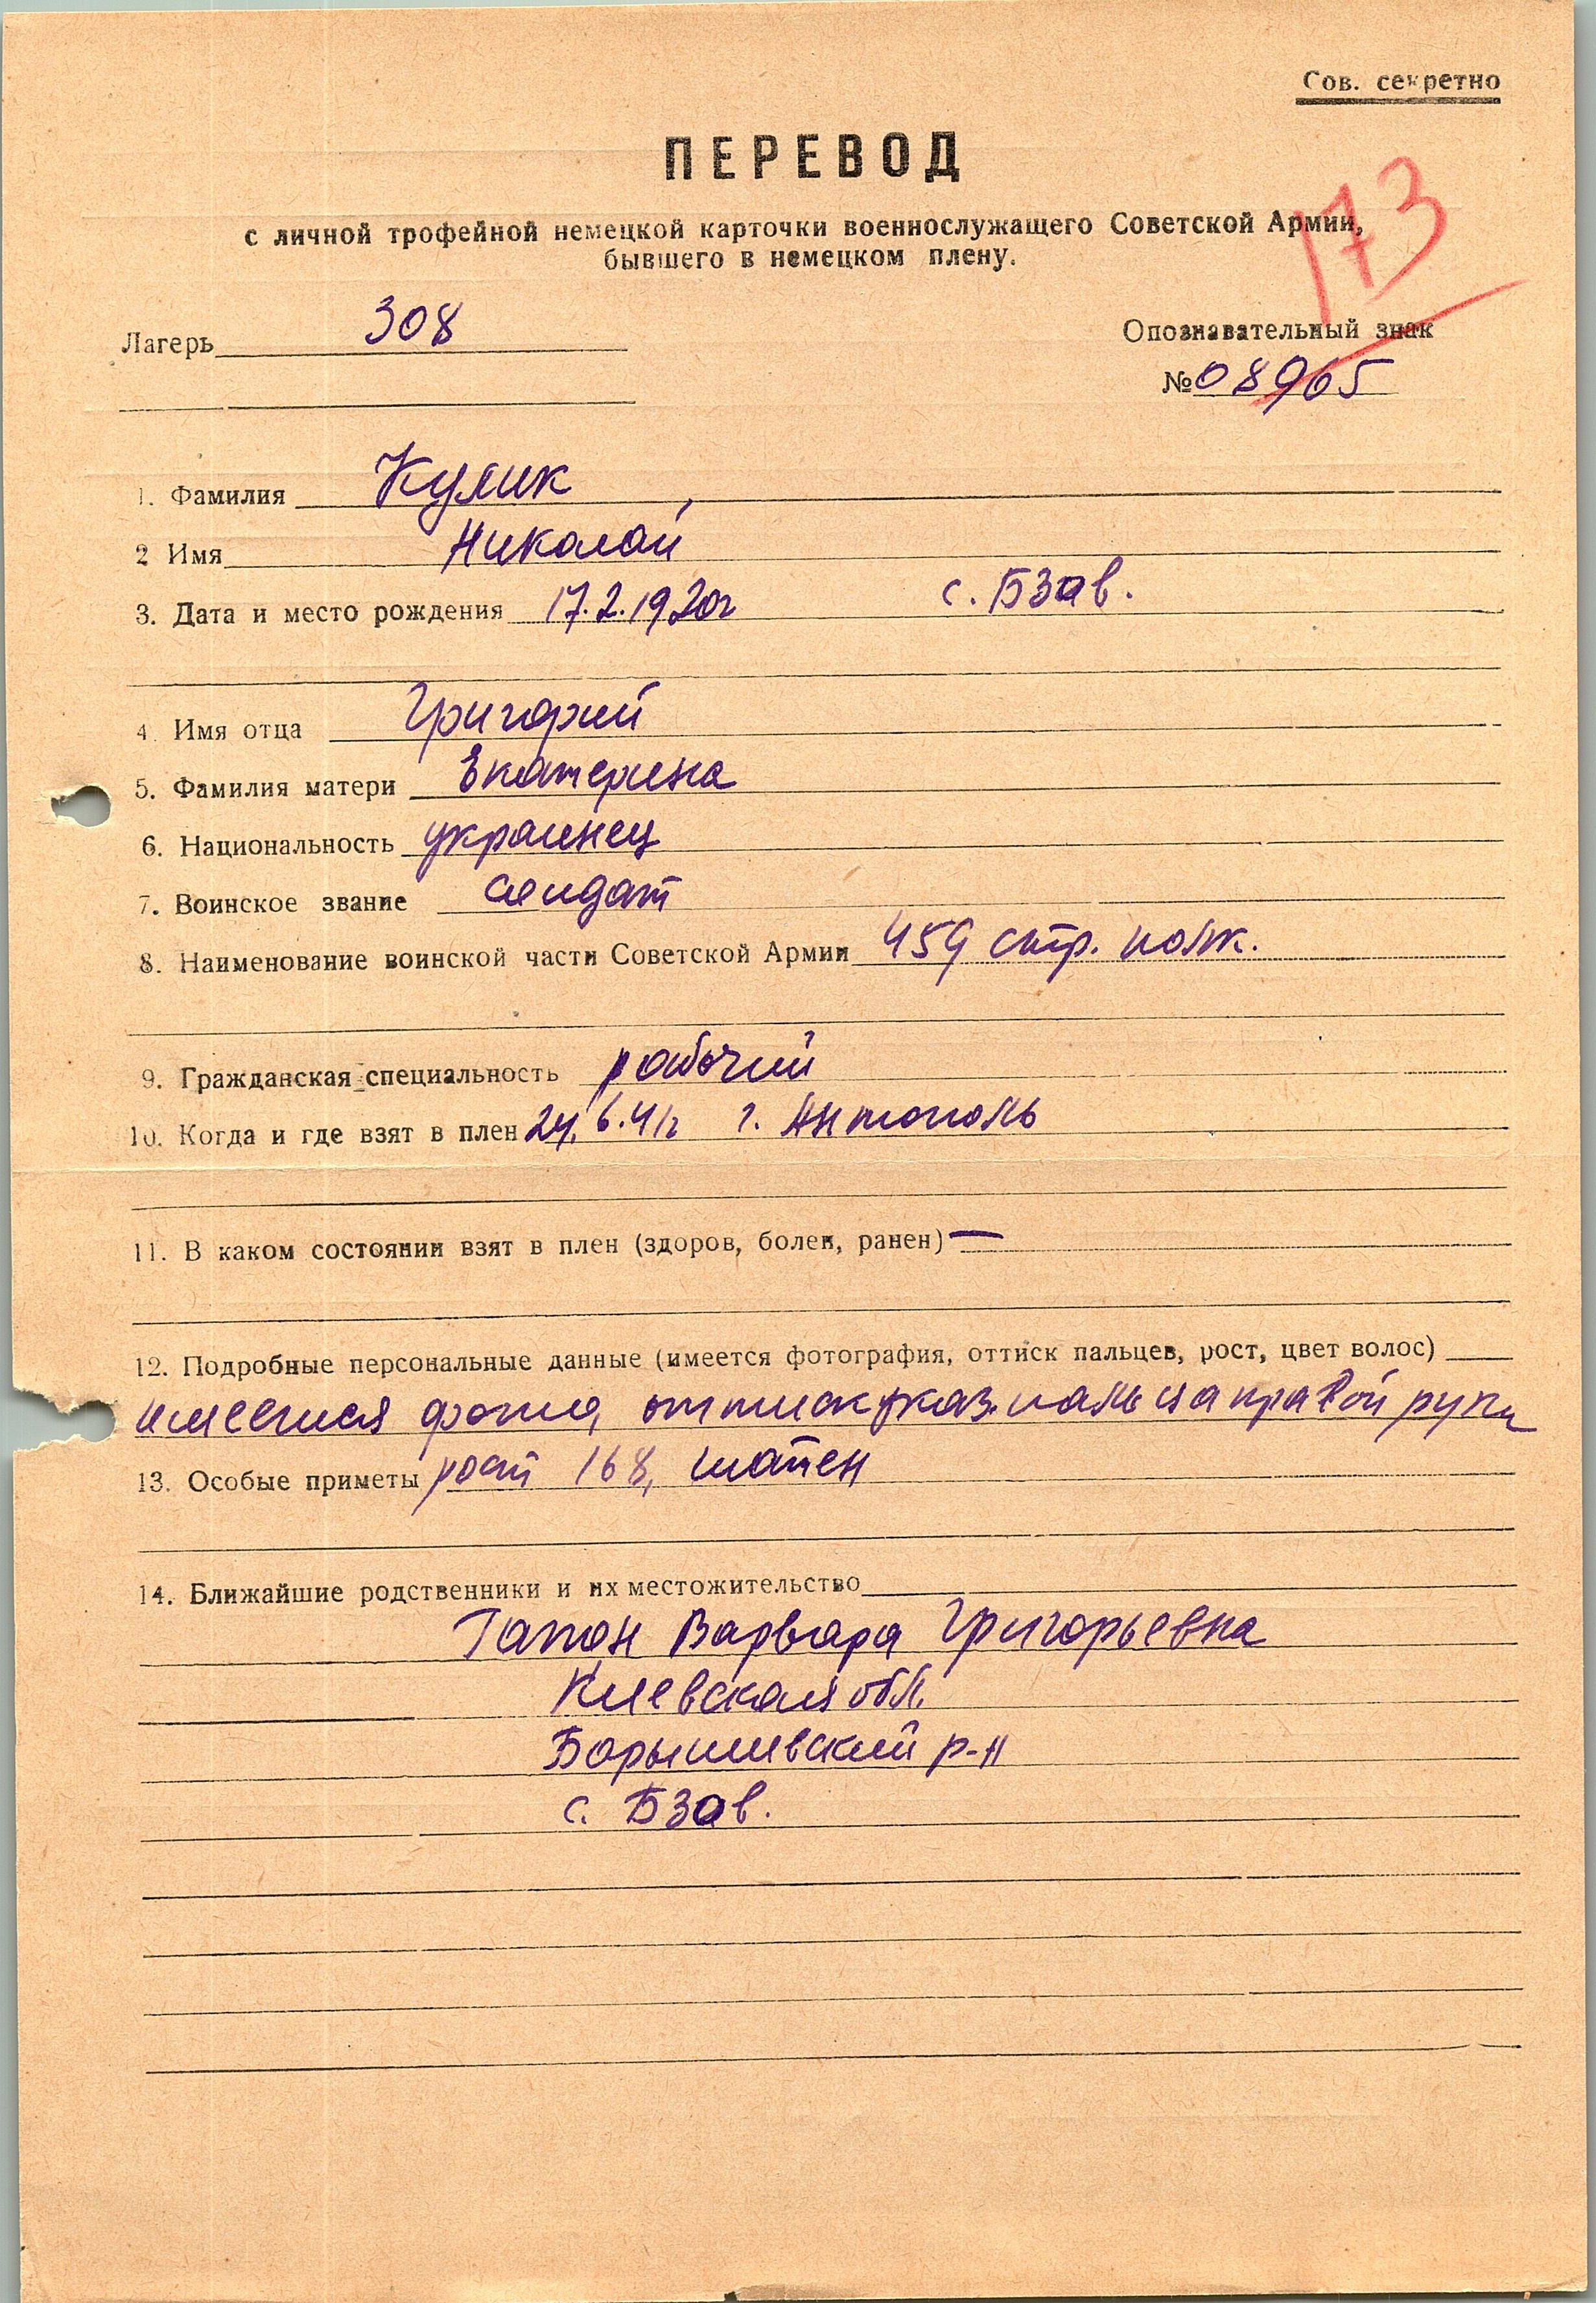 Сов. секретно
ПЕРЕВОД
173
с личной трофейной немецкой карточки военнослужащего Советской Армии,
бывшего в немецком плену.
Лагерь 308
Опознавательный знак
№ 08965
1. Фамилия Кулик
2 Имя Николай
3. Дата и место рождения 17.2.1920г с. Бзов.
4. Имя отца Григорий
5. Фамилия матери Екатерина
6. Национальность украинец
7. Воинское звание солдат
8. Наименование воинской части Советской Армии 459 стр. полк.
9. Гражданская специальность рабочий
10. Когда и где взят в плен 24.6.41г г. Антополь
11. В каком состоянии взят в плен (здоров, болен, ранен) —
12. Подробные персональные данные (имеется фотография, оттиск пальцев, рост, цвет волос)
имеется фото, оттиск указ. пальца правой руки
13. Особые приметы рост 168, шатен
14. Ближайшие родственники и их местожительство
Гапон Варвара Григорьевна
Киевская обл.
Борышивский р-н
с. Бзов.